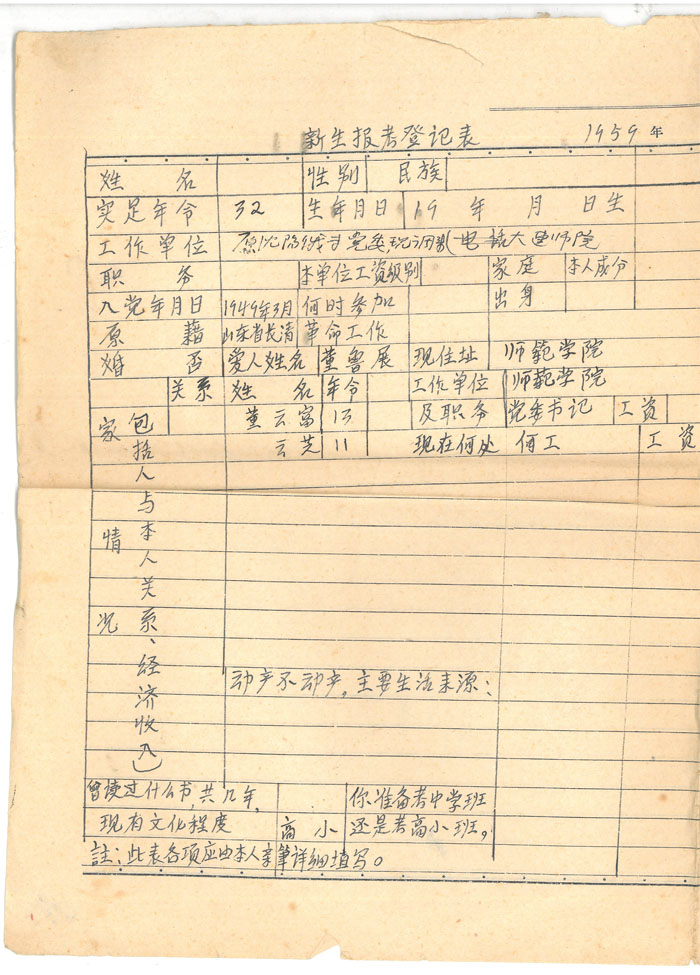 新生报考登记表 1959年
姓名 性别 民族
实足年令 32 生年月日 19 年 月 日生
工作单位 党委 电 话大 师院
职务 本单位工资级别 家庭出身 本人成分
入党年月日 1949年3月 何时参加革命工作
原籍 山东省长清
婚否 爱人姓名 董鲁展 现住址 师範学院
关系 姓名 年令 工作单位及职务 师範学院党委书记 工资
董云富 13
云芝 11 现在何处 何工 工资
家 情 况
包括人与本人关系、经济收入)
动产不动产,主要生活来源:
曾读过什么书,共几年,
现有文化程度 高小
你准备考中学班
还是考高小班。
註:此表各项应由本人亲筆详细填写。